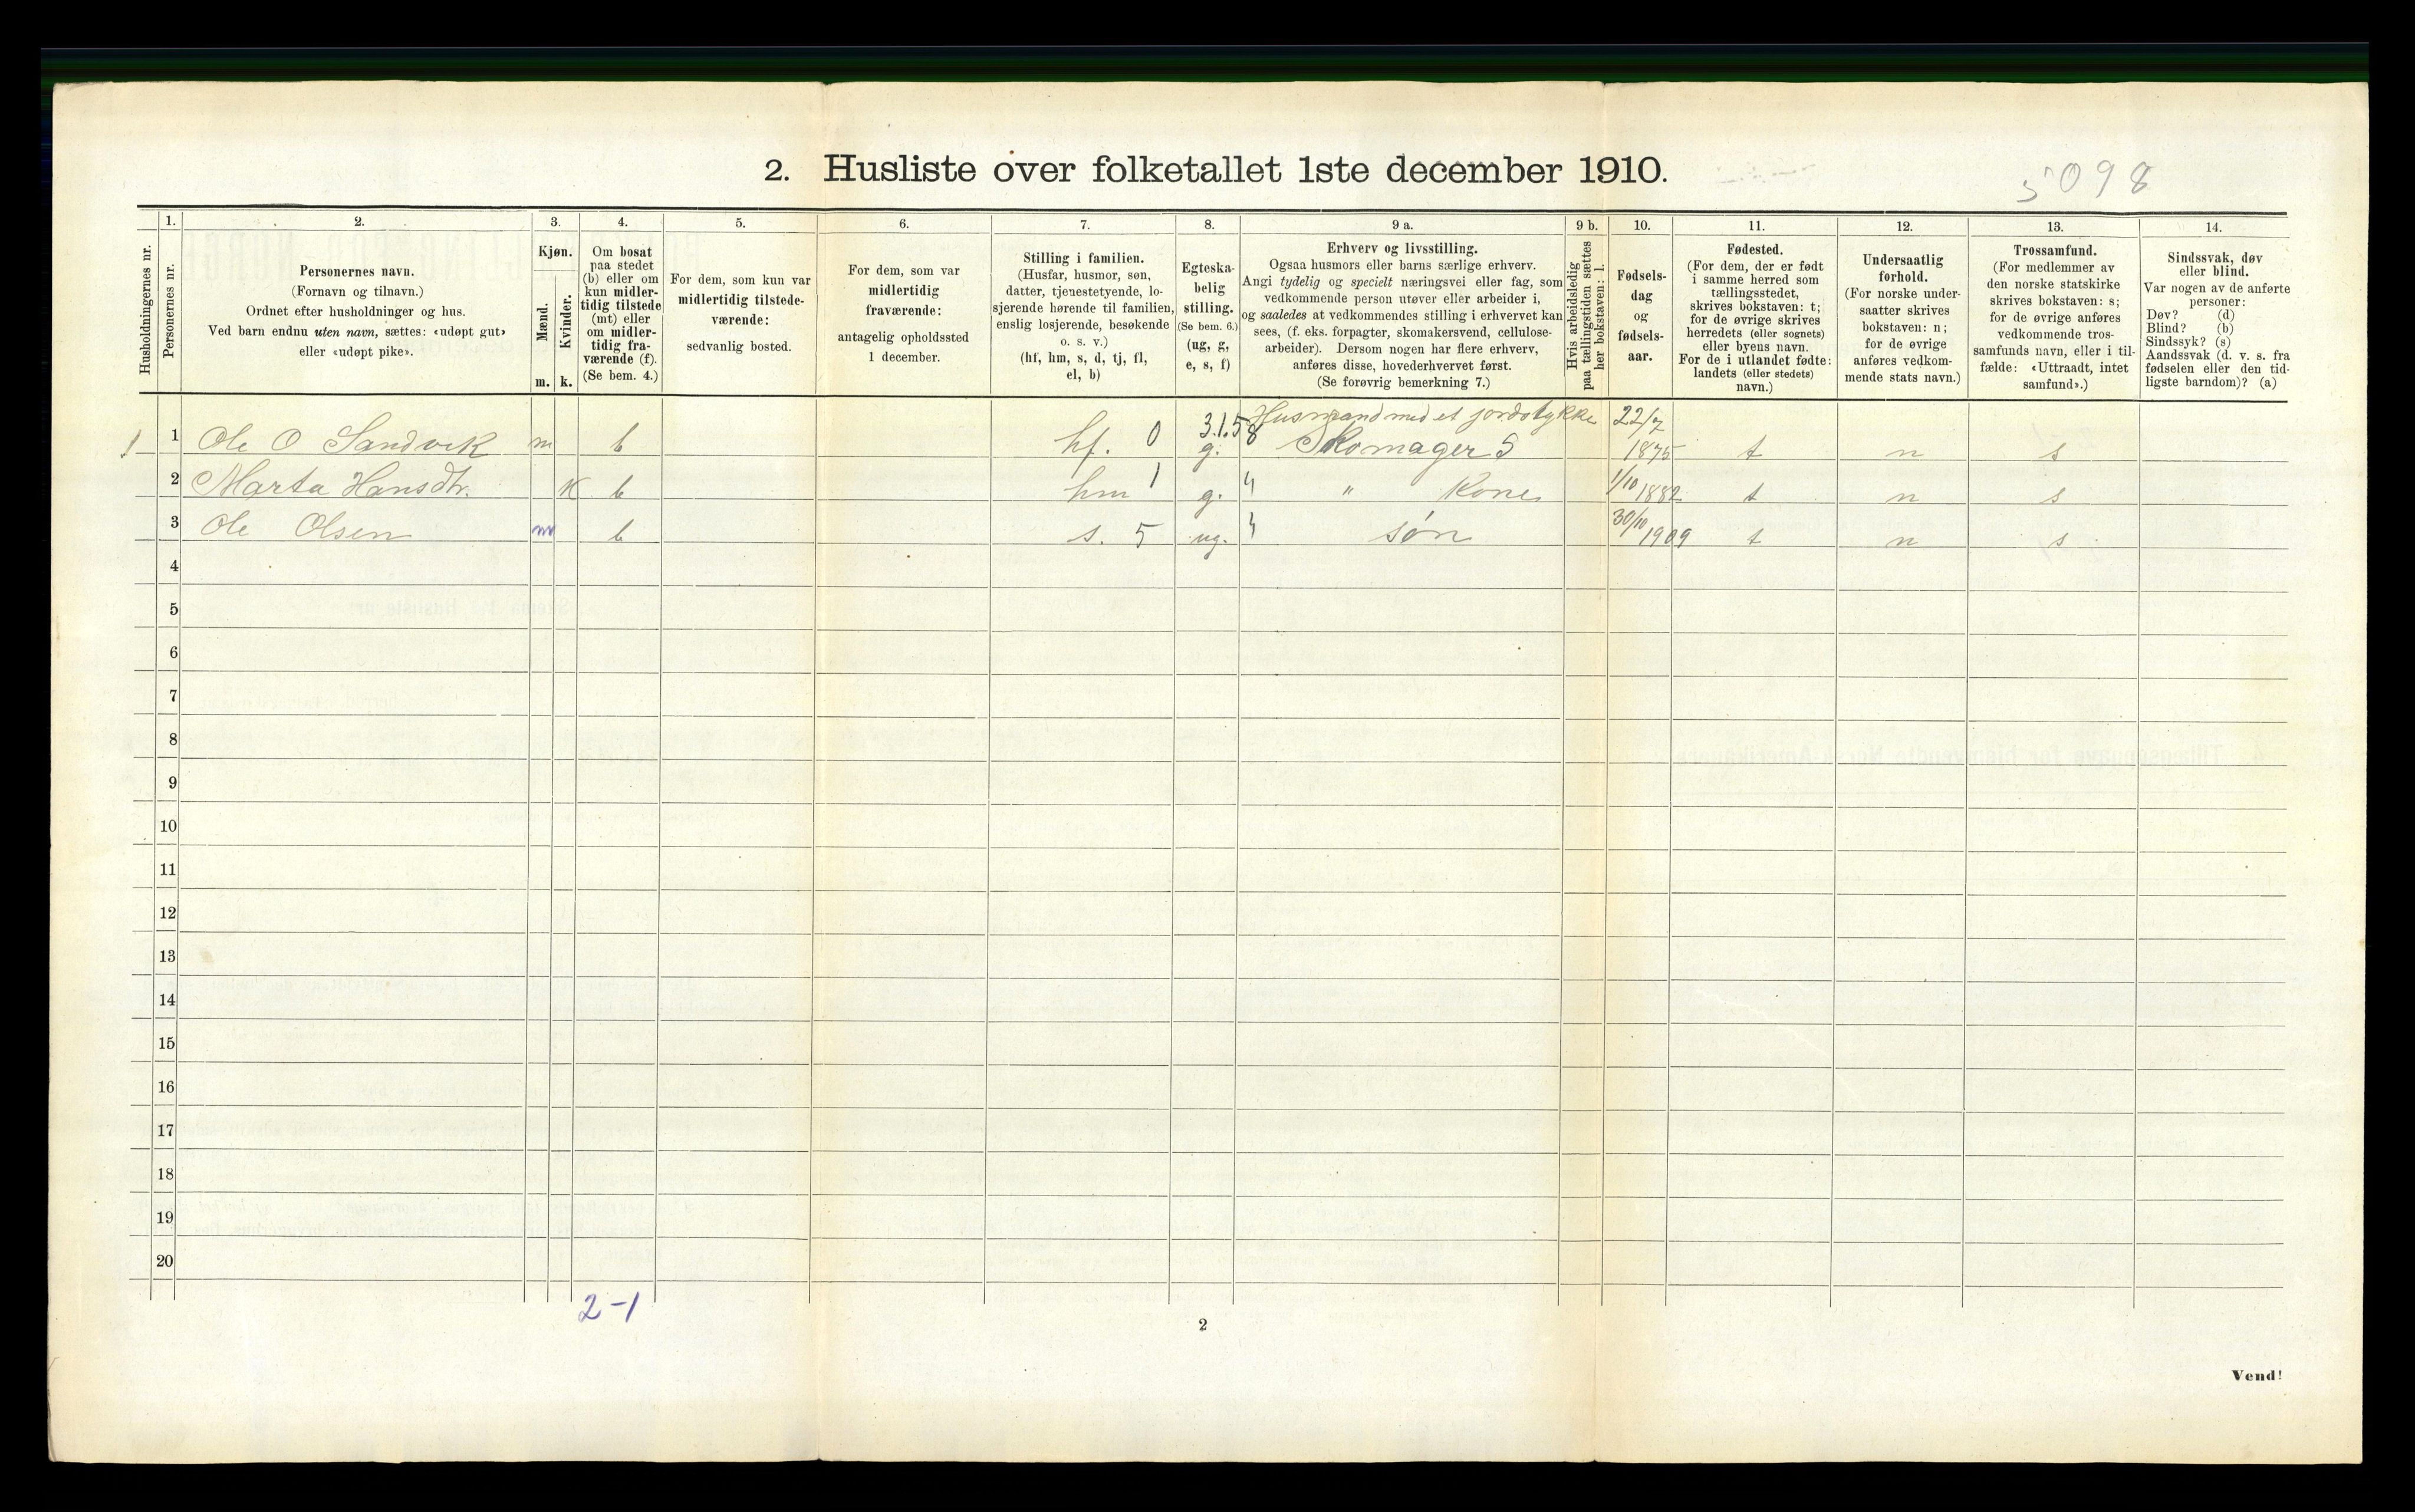 2. Husliste over folketallet 1ste december 1910.
5098
Husholdningernes nr.
1.
Personernes nr.
2.
Personernes navn.
(Fornavn og tilnavn.)
Ordnet efter husholdninger og hus.
Ved barn endnu uten navn, sættes: «udøpt gut»
eller «udøpt pike».
3.
Kjøn.
Mænd.
Kvinder.
m. k.
4.
Om bosat
paa stedet
(b) eller om
kun midler-
tidig tilstede
(mt) eller
om midler-
tidig fra-
værende (f).
(Se bem. 4.)
5.
For dem, som kun var
midlertidig tilstede-
værende:
sedvanlig bosted.
6.
For dem, som var
midlertidig
fraværende:
antagelig opholdssted
1 december.
7.
Stilling i familien.
(Husfar, husmor, søn,
datter, tjenestetyende, lo-
sjerende hørende til familien,
enslig losjerende, besøkende
o. s. v.)
(hf, hm, s, d, tj, fl,
el, b)
8.
Egteska-
belig
stilling.
(Se bem. 6.)
(ug, g,
e, s, f)
9 a.
Erhverv og livsstilling.
Ogsaa husmors eller barns særlige erhverv.
Angi tydelig og specielt næringsvei eller fag, som
vedkommende person utøver eller arbeider i,
og saaledes at vedkommendes stilling i erhvervet kan
sees, (f. eks. forpagter, skomakersvend, cellulose-
arbeider). Dersom nogen har flere erhverv,
anføres disse, hovederhvervet først.
(Se forøvrig bemerkning 7.)
9 b.
Hvis arbeidsledig
paa tællingstiden sættes
her bokstaven: l.
10.
Fødsels-
dag
og
fødsels-
aar.
11.
Fødested.
(For dem, der er født
i samme herred som
tællingsstedet,
skrives bokstaven: t;
for de øvrige skrives
herredets (eller sognets)
eller byens navn.
For de i utlandet fødte:
landets (eller stedets)
navn.)
12.
Undersaatlig
forhold.
(For norske under-
saatter skrives
bokstaven: n;
for de øvrige
anføres vedkom-
mende stats navn.)
13.
Trossamfund.
(For medlemmer av
den norske statskirke
skrives bokstaven: s;
for de øvrige anføres
vedkommende tros-
samfunds navn, eller i til-
fælde: «Uttraadt, intet
samfund».)
14.
Sindssvak, døv
eller blind.
Var nogen av de anførte
personer:
Døv? (d)
Blind? (b)
Sindssyk? (s)
Aandssvak (d. v. s. fra
fødselen eller den tid-
ligste barndom)? (a)
3.1.58 Husmand med et jordstykke 22/7
1 1 Ole O Sandvik m b hf. 0 g. Skomager S 1875 t n s
2 Marta Hansdtr. K b hm 1 g. " " Kone 1/10 1882 t n s
3 Ole Olsen m b s. 5 ug. " søn 30/10 1909 t n s
4
5
6
7
8
9
10
11
12
13
14
15
16
17
18
19
20
2-1
2
Vend!